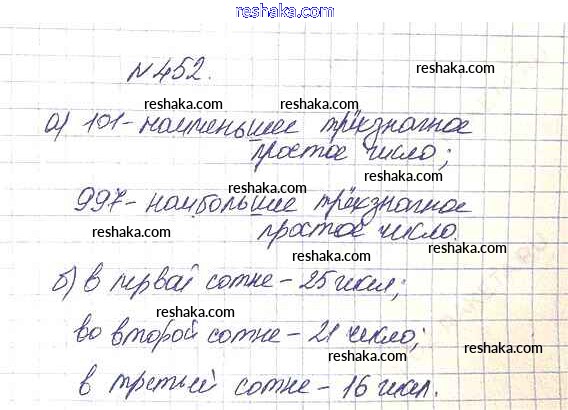 reshaka.com
№452.
reshaka.com
reshaka.com reshaka.com
а) 101-наименьшее трёхзначное
reshaka.com
простое число;
reshaka.com
997-наибольшее трёхзначное
reshaka.com
простое число.
reshaka.com reshaka.com
б) в первой сотне - 25 чисел;
reshaka.com
во второй сотне - 21 число;
reshaka.com
reshaka.com
в третьей сотне - 16 чисел.
reshaka.com